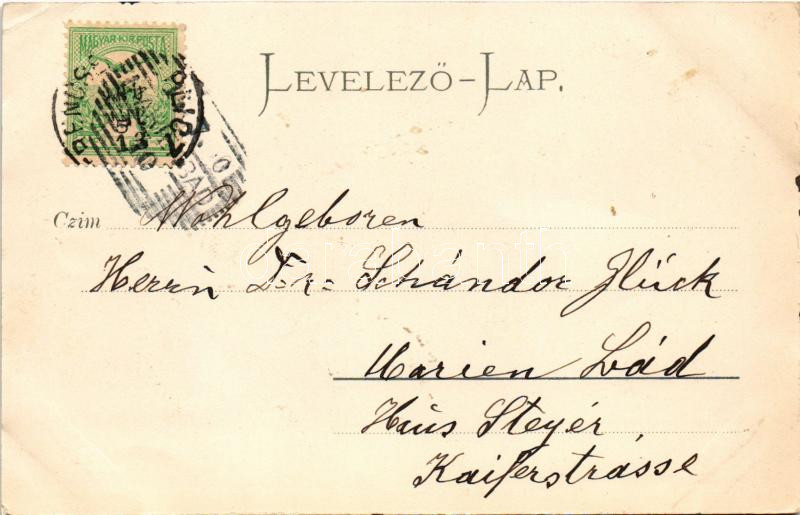 MAGYAR·KIR·POSTA
LEVELEZŐ-LAP.
Czim Wohlgeboren
Herrn Dr= Schándor Glück
Marien Bád
Haus Steyér,
Kaiserstrásse